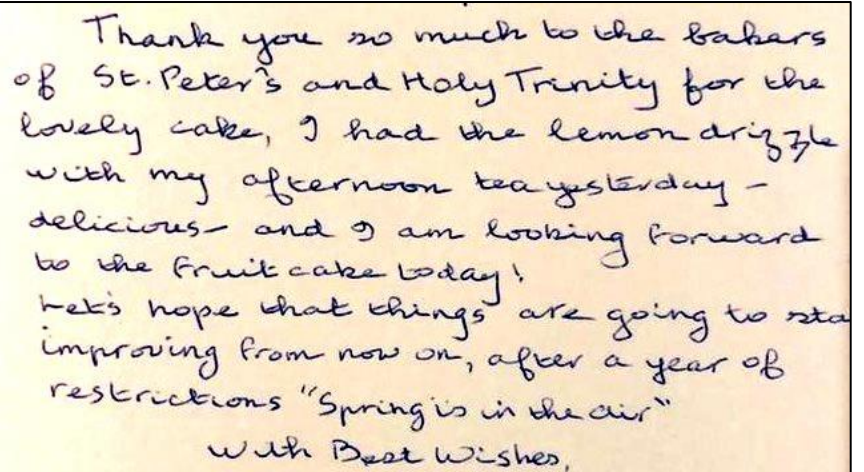 Thank you so much to the bakers
of St. Peter's and Holy Trinity for the
lovely cake, I had the lemon drizzle
with my afternoon tea yesterday -
delicious - and I am looking forward
to the fruit cake today!
Let's hope that things are going to sta
improving from now on, after a year of
restrictions "Spring is in the air"
With Best Wishes,